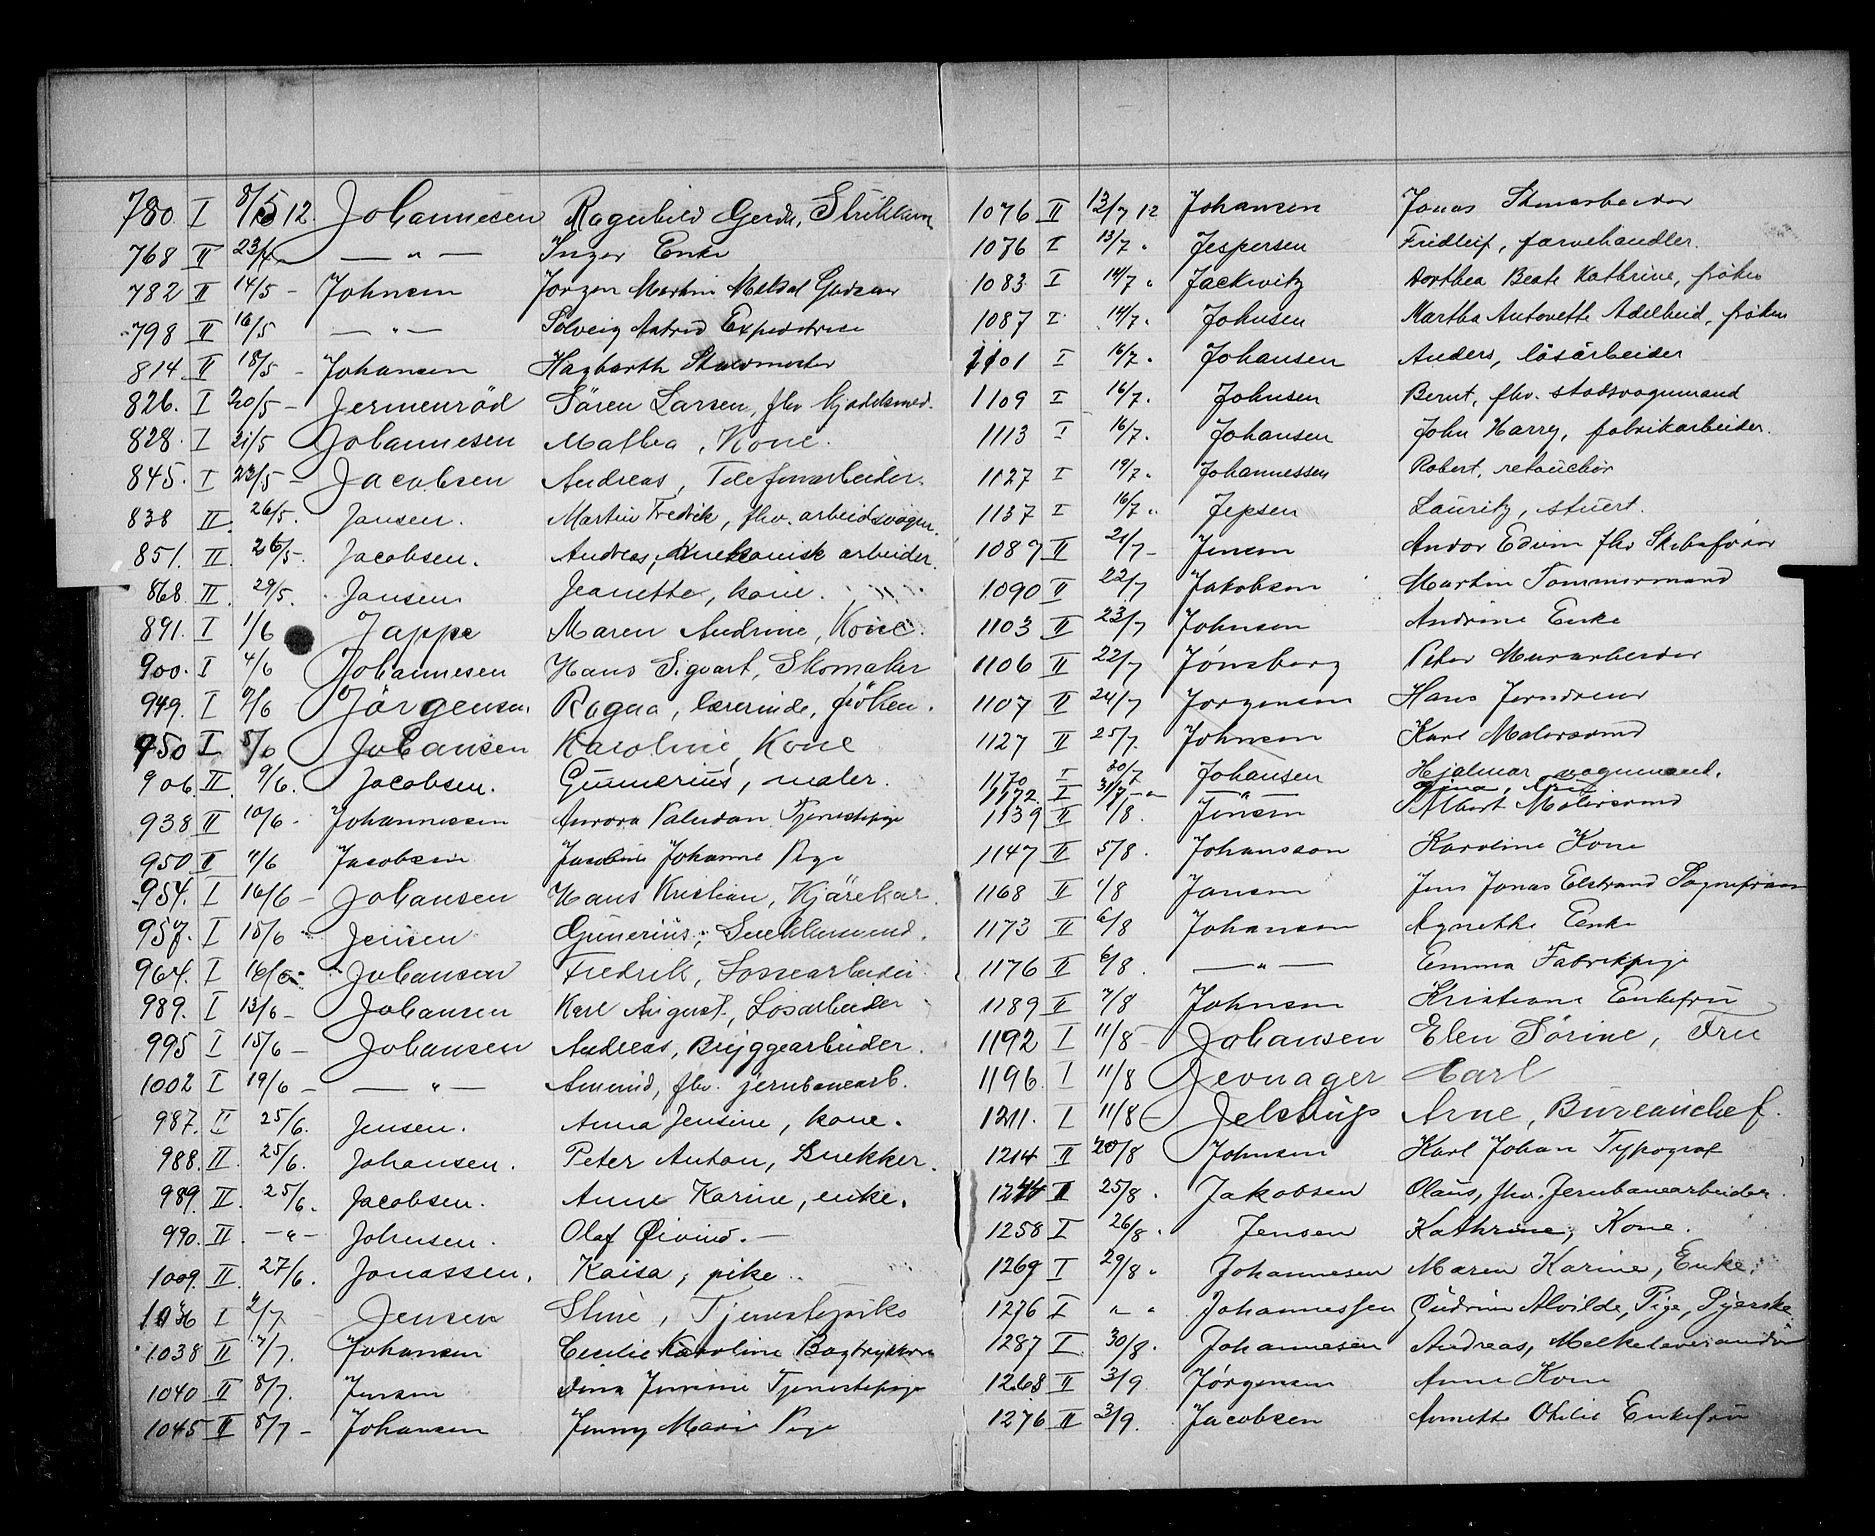 780 I 8/5 12. Johannesen Ragnhild Gerda,
768 II 23/4 — " — Inger Enke
782 II 14/5 - Johnsen Jørgen Martin
798 II 16/5 — " — Solveig Astrid Expeditrice
814 II 18/5 - Johansen Hagbarth
826. I 20/5 - Jermenröd Sören Larsen, fhv.
828. I 21/5 Johannesen Mathea, Kone.
845. I 23/5 - Jacobsen Andreas, Telefonarbeider.
838 II. 26/5. Jansen. Martin Fredrik, fhv. arbeidsvogn.
851. II. 26/5. Jacobsen. Andreas, arbeider.
868. II. 29/5. Jansen Jeanette, kone.
891. I 1/6 Jappe Maren Andrine, Kone.
900. I 4/6 Johannesen Hans Sigvart, Skomaker
949. I 9/6 Jörgensen. Ragna, lærerinde, fröken.
950 I 5/6 Johansen Karoline, Kone
906. II. 9/6. Jacobsen. Gunnerius, maler.
938 II 10/6 - Johannessen Aurora Paludan Tjenestepige
950 II 11/6 Jacobsen Jacobine Johanne Pige
954. I 16/6 - Johansen Hans Kristian, Kjörekar.
957. I 15/6 Jensen Gunerius, Snekkersvend.
964. I 16/6 - Johansen Fredrik, Lossearbeider
989. I 13/6 - Johansen Karl August, Løsarbeider
995 I 15/6 - Johansen Andreas, Bryggearbeider.
1002 I 19/6 - — " — Amund, fhv. jernbanearb.
987. II 25/6. Jensen. Anna Jensine, kone.
988. II. 25/6. Johansen. Peter Anton, Snekker.
989. II. 25/6. Jacobsen. Anne Karine, enke.
990. II. — " — Johnsen. Olaf Øivind. —
1009. II. 27/6. Jonassen. Kaisa, pike.
1036 I 2/7 Jensen Stine, Tjenestepike
1038 II 7/7. Johansen Cecilie Karoline
1040 II 8/7. Jensen Dina Jensine Tjenestepige
1045 II 8/7 - Johansen Jenny Marie Pige
1076 II 13/7 12 Johansen Jonas Stenarbeider
1076 I 13/7 " Jespersen Fridleif, farvehandler.
1083 I 14/7 " Jackwitz Dorthea Beate Kathrine, frøken
1087 I 14/7 " Johnsen Martha Antonette Adelheid, frøken
1101 I 16/7 " Johansen Anders, løsarbeider
1109 I 16/7 . Johnsen Bernt, fhv. stadsvognmand
1113 I 16/7 . Johansen John Harry, fabrikarbeider.
1127 I 19/7 " Johannessen Robert, retouchør
1137 I 16/7 " Jepsen Lauritz, stuert.
1087 II 21/7 - Jensen Andor Edvin fhv Skibsfører
1090 II 22/7 Jakobsen Martin Tømmermand
1103 II 23/7 Johnsen Andrine Enke
1106 II 22/7 Jønsberg Peter Murarbeider
1107 II 24/7 Jørgensen Hans Jerndreier
1127 II 25/7. Johnsen Karl Malersvend
1170 I 30/7 Johansen Hjalmar, vognmand.
1172 I 31/7 — " —
1139 II 1/8. Jensen Albert Malersvend
1147 II 5/8 . Johansson Karoline Kone
1168 II 1/8 Jansen Jens Jonas Elstrand
1173 II 6/8 Johansen Agnethe Enke
1176 II 6/8. — " — Emma Fabrikpige
1189 II 7/8 Johnsen Kristiane Enkefru
1192 I 11/8 - Johansen Elen Sörine, Fru
1196. I 11/8 Jevnager Carl
1211. I 11/8 Jelstrup Arne, Bureauchef.
1214 II 20/8 Johnsen Karl Johan Typograf
1244 II 25/8 . Jakobsen Olaus, fhv. Jernbanearbeider.
1258 I 26/8 . Jensen Kathrine, Kone.
1269 I 29/8 " Johannesen Maren Karine, Enke.
1276 I " " Johannessen Gudrun Alvilde, Pige, Syerske
1287 I 30/8. Johannesen Andreas, Melkeleverandør
1268 II 3/9 Jørgensen Anne Kone
1276 II 3/9. Jacobsen Annette Otilie Enkefru